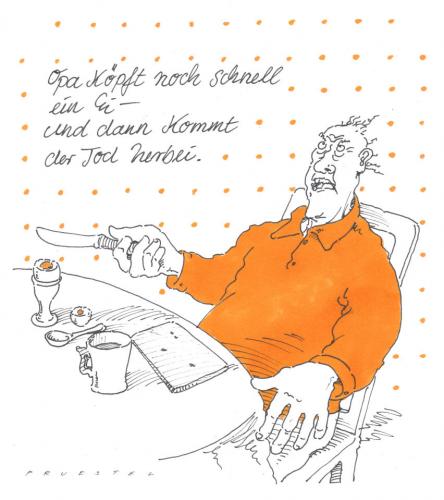 Opa köpft noch schnell
ein Ei –
und dann kommt
der Tod herbei.
PRUESTEL